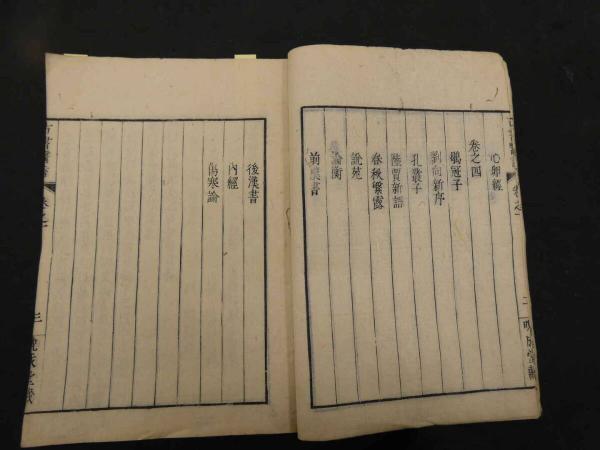 心印經
卷之四
鶡冠子
劉向新序
孔叢子
陸賈新語
春秋繁露
說苑
論衡
前漢書
二
後漢書
內經
傷寒論
三